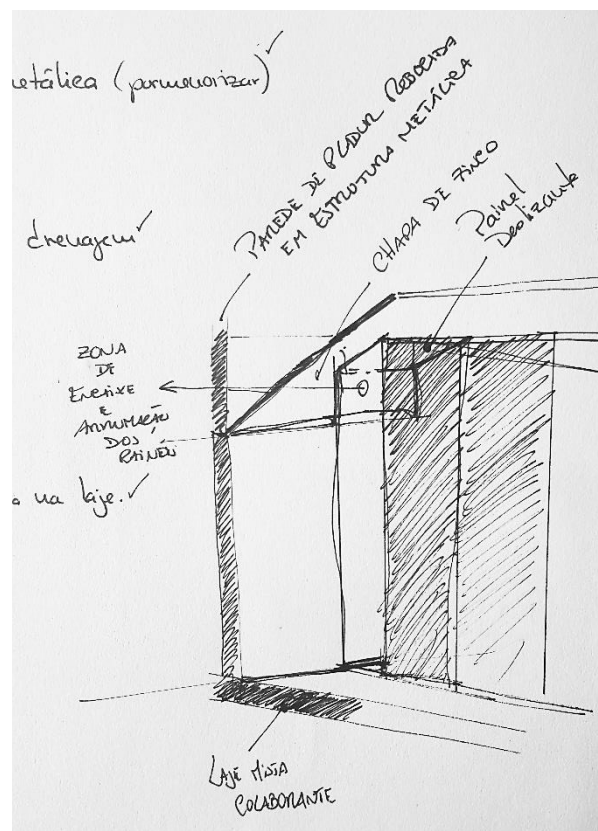 etálica (pormenorizar) ✓
PAREDE DE PLADUR REBOCADA
EM ESTRUTURA METÁLICA
CHAPA DE ZINCO
Painel
Deslizante
drenagem ✓
ZONA
DE
ENCAIXE
E
ARRUMAÇÃO
DOS
PAINÉIS
a na laje. ✓
LAJE MISTA
COLABORANTE